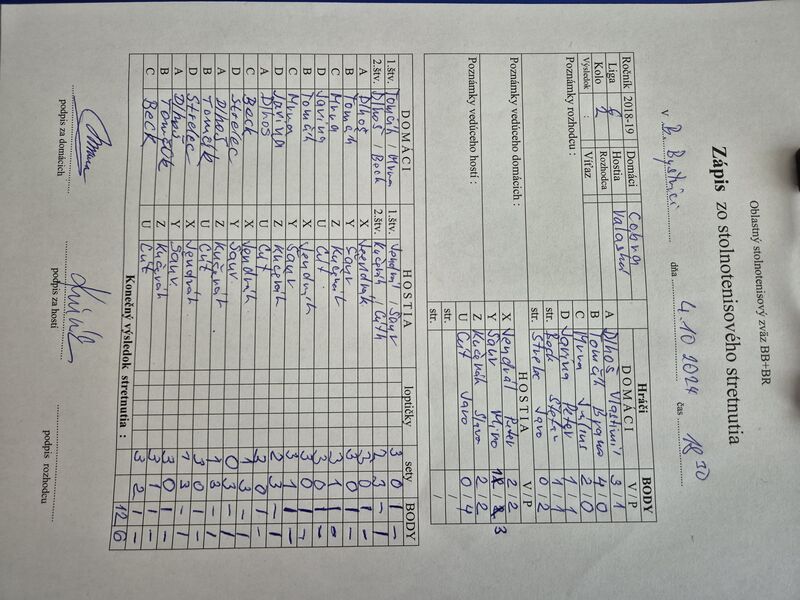 Oblastný stolnotenisový zväz BB+BR
Zápis zo stolnotenisového stretnutia
v B. Bystrici dňa 4.10 2024 čas 18 30
Ročník 2018-19 Domáci Cobra
Liga 6 Hostia Valaská
Kolo 2 Rozhodca
Výsledok : Víťaz
Poznámky rozhodcu :
Poznámky vedúceho domácich :
Poznámky vedúceho hostí :
Hráči BODY
DOMÁCI V/P
A Dlhoš Vlastimil 3/1
B Tomčík 4/0
C Mrva Július 2/0
D Javina Peter 1/1
str. Beck Štefan 1/1
str. Strelec Jaro 0/2
HOSTIA V/P
X Vendrák Peter 2/2
Y Sauv Miro 3
Z Kučerák Slavo 2/2
U Cút Jaro 0/4
str. /
str. /
DOMÁCI HOSTIA loptičky sety BODY
1.štv. Tomčík / Mrva 1.štv. Vendrák / Sauv 3 0 1 -
2.štv. Dlhoš / Beck 2.štv. Kučerák / Cúth 2 3 - 1
A Dlhoš X Vendrák 3 0 1 -
B Tomčík Y Sauv 3 0 1 -
C Mrva Z Kučerák 3 1 1 -
D Javina U Cút 3 0 1 -
B Tomčík X Vendrák 3 0 1 -
C Mrva Y Sauv 3 1 1 -
D Javina Z Kučerák 2 3 - 1
A Dlhoš U Cút 3 0 1 -
C Beck X Vendrák 1 3 - 1
D Strelec Y Sauv 0 3 - 1
A Dlhoš Z Kučerák 1 3 - 1
B Tomčík U Cút 3 0 1 -
D Strelec X Vendrák 1 3 - 1
A Dlhoš Y Sauv
B Tomčík Z Kučerák 3 0 1 -
C Beck U Cút 3
Konečný výsledok stretnutia : 12 6
podpis za domácich podpis za hostí podpis rozhodcu